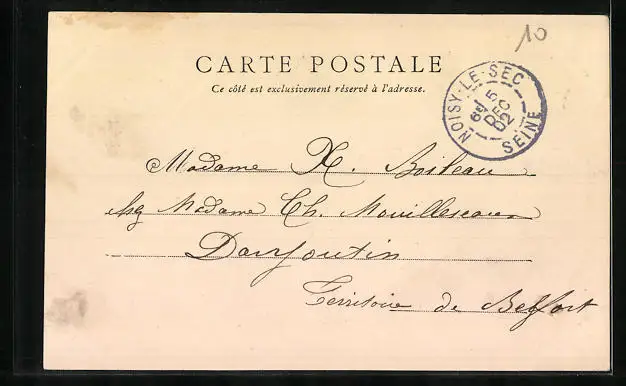 10
CARTE POSTALE
Ce côté est exclusivement réservé à l'adresse.
NOISY-LE-SEC
6E 5
DEC
02
SEINE
Madame X. Boileau
chez Madame Ch. Mouilleseaux
Danjoutin
Territoire de Belfort